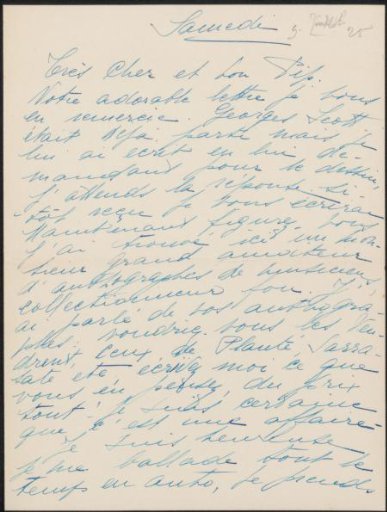 Samedi 5 juillet 25
Très Cher et bon Pip.
Votre adorable lettre je vous
en remercie. Georges Scott
était déjà parti mais je
lui ai écrit en lui de-
mandant pour le dessin,
j'attends la réponse. Si-
tôt reçue je vous écrirai
Maintenant figurez vous
j'ai trouvé ici un mon-
sieur grand amateur
d'autographes de musiciens,
collectionneur fou. J'
ai parlé de vos autogra-
phes. voudriez vous les ven-
drent, ceux de Planté, Sarra-
sate etc écrivez moi ce que
vous en pensez, du prix
tout. je suis certaine
que c'est une affaire
Je suis heureuse
je me ballade tout le
temps en auto, je prends